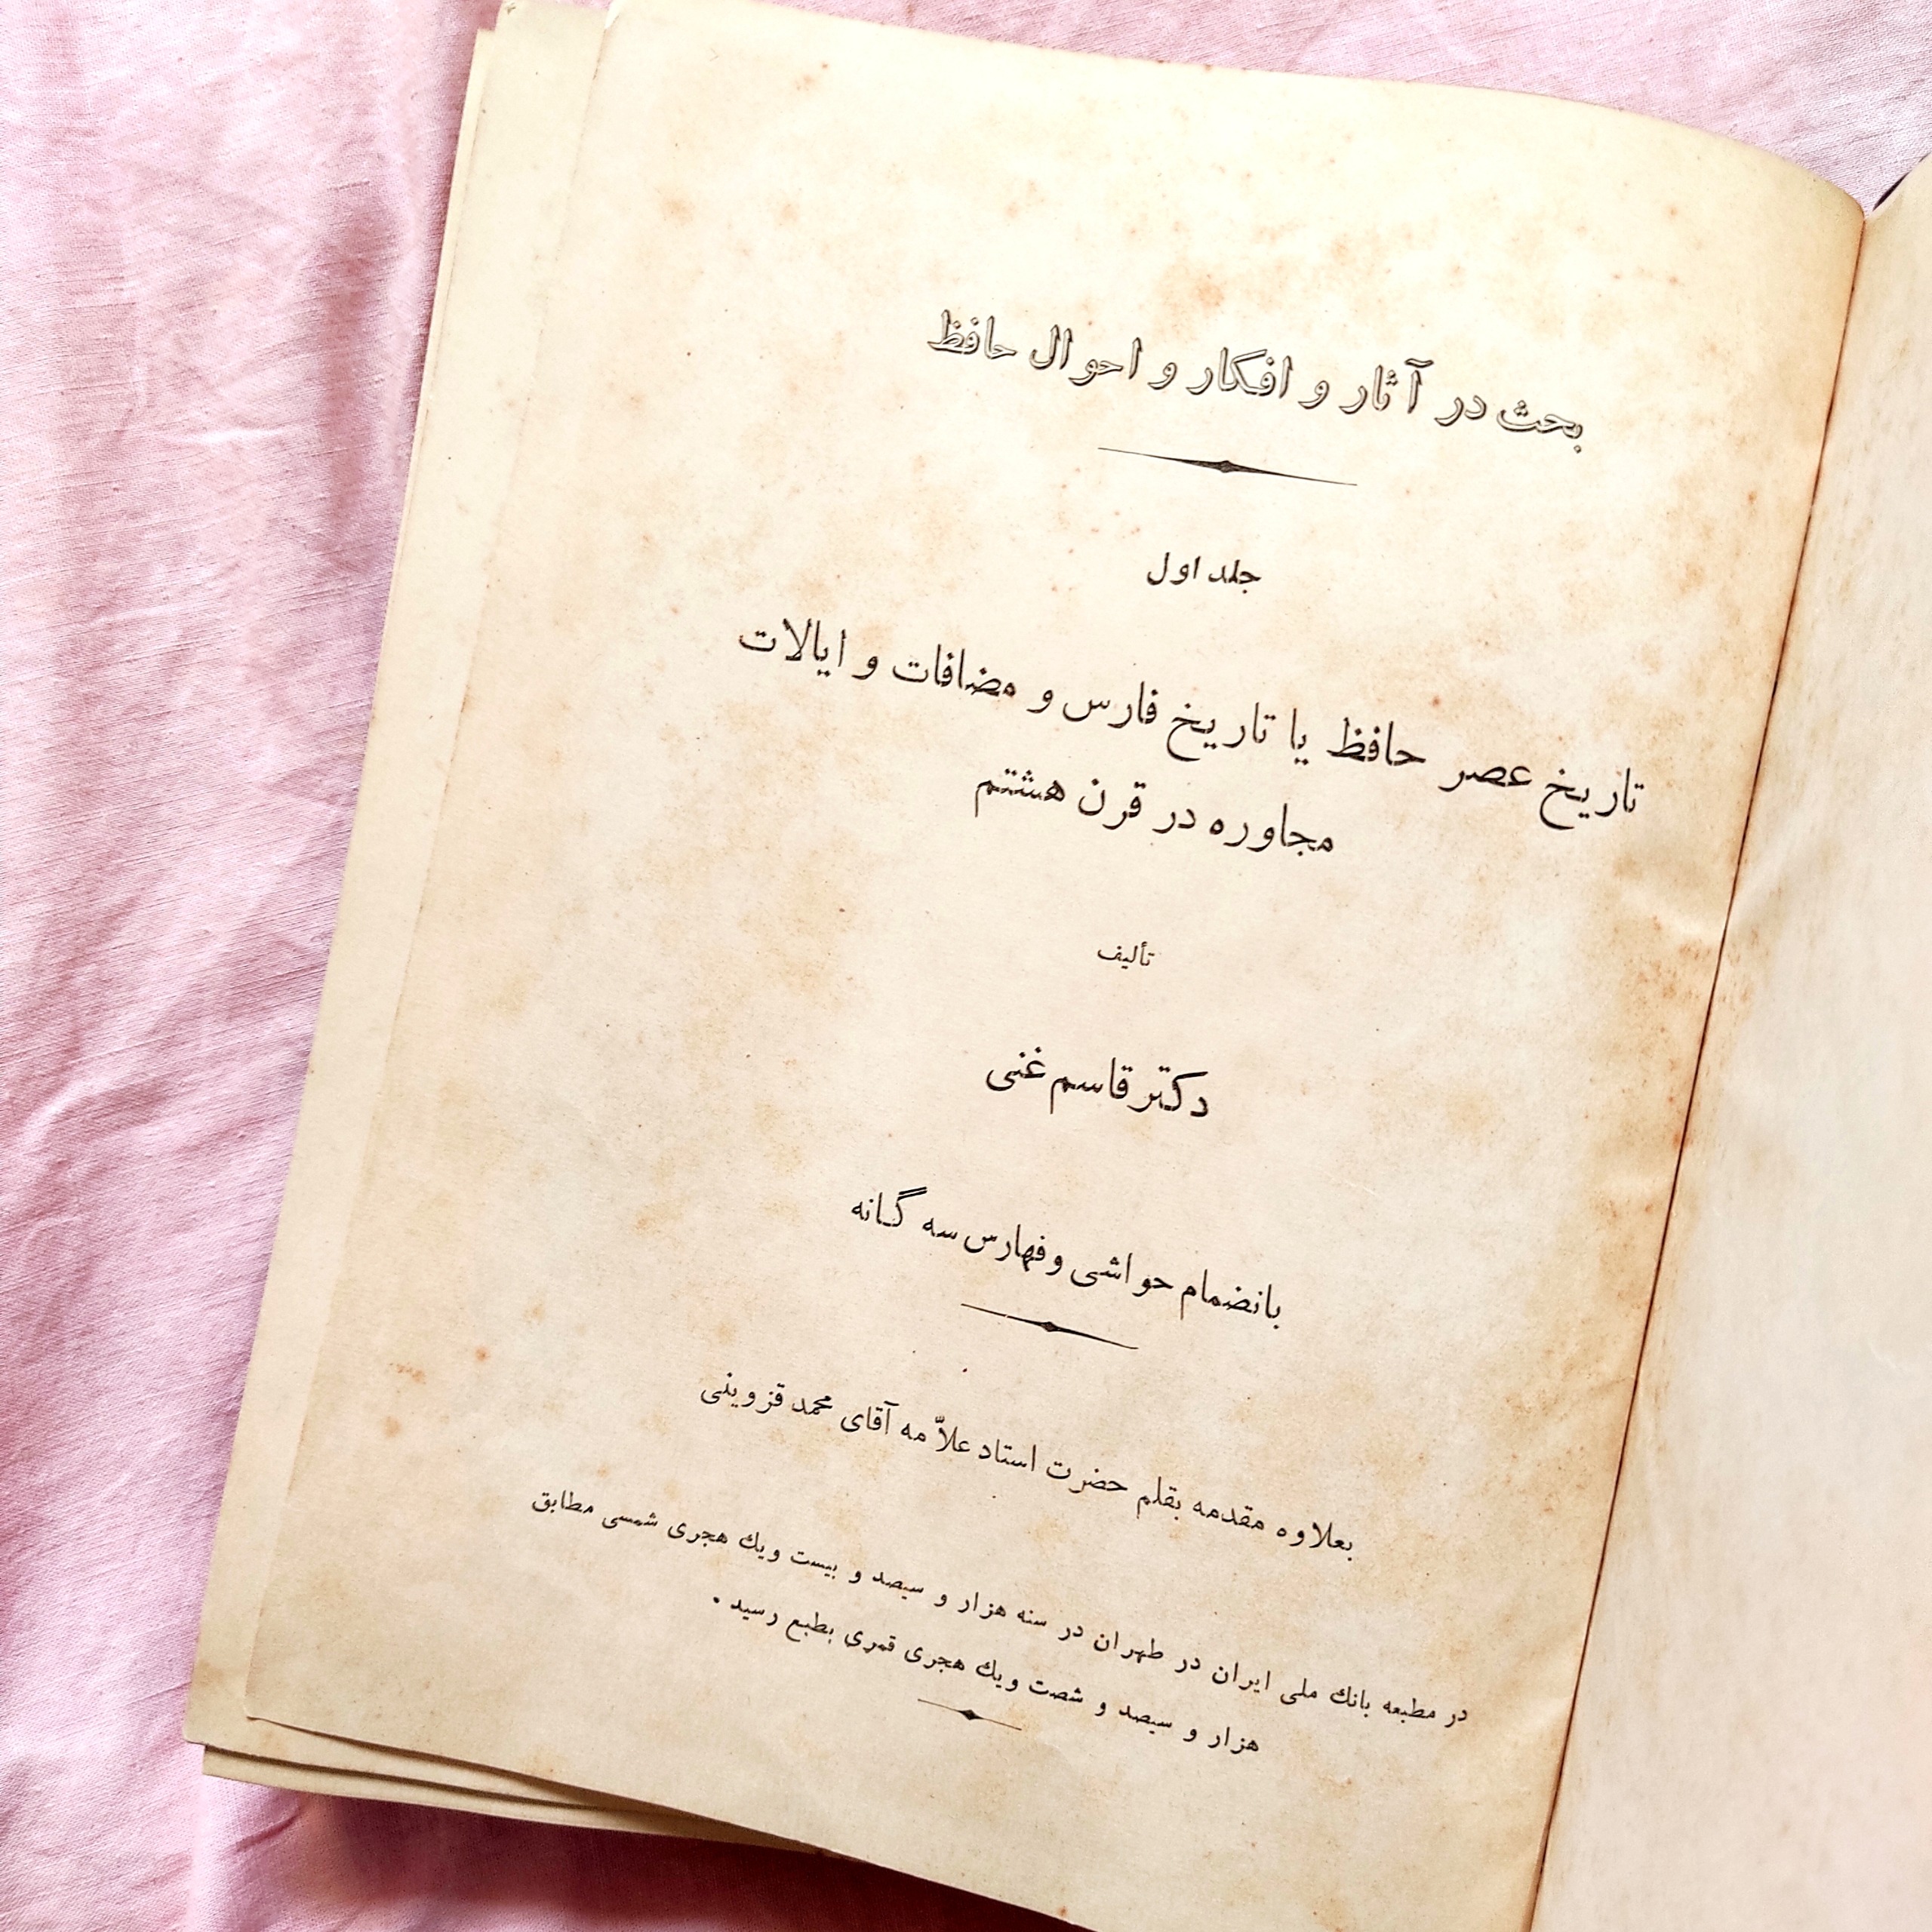 بحث در آثار و افکار و احوال حافظ
جلد اول
تاریخ عصر حافظ یا تاریخ فارس و مضافات و ایالات
مجاوره در قرن هشتم
تألیف
دکتر قاسم غنی
بانضمام حواشی و فهارس سه گانه
بعلاوه مقدمه بقلم حضرت استاد علاّمه آقای محمد قزوینی
در مطبعه بانك ملی ایران در طهران در سنه هزار و سیصد و بیست و یك هجری شمسی مطابق
هزار و سیصد و شصت و یك هجری قمری بطبع رسید .